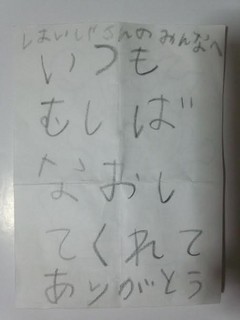 しはいしゃさんのみんなへ
いつも
むしば
なおし
てくれて
ありがとう